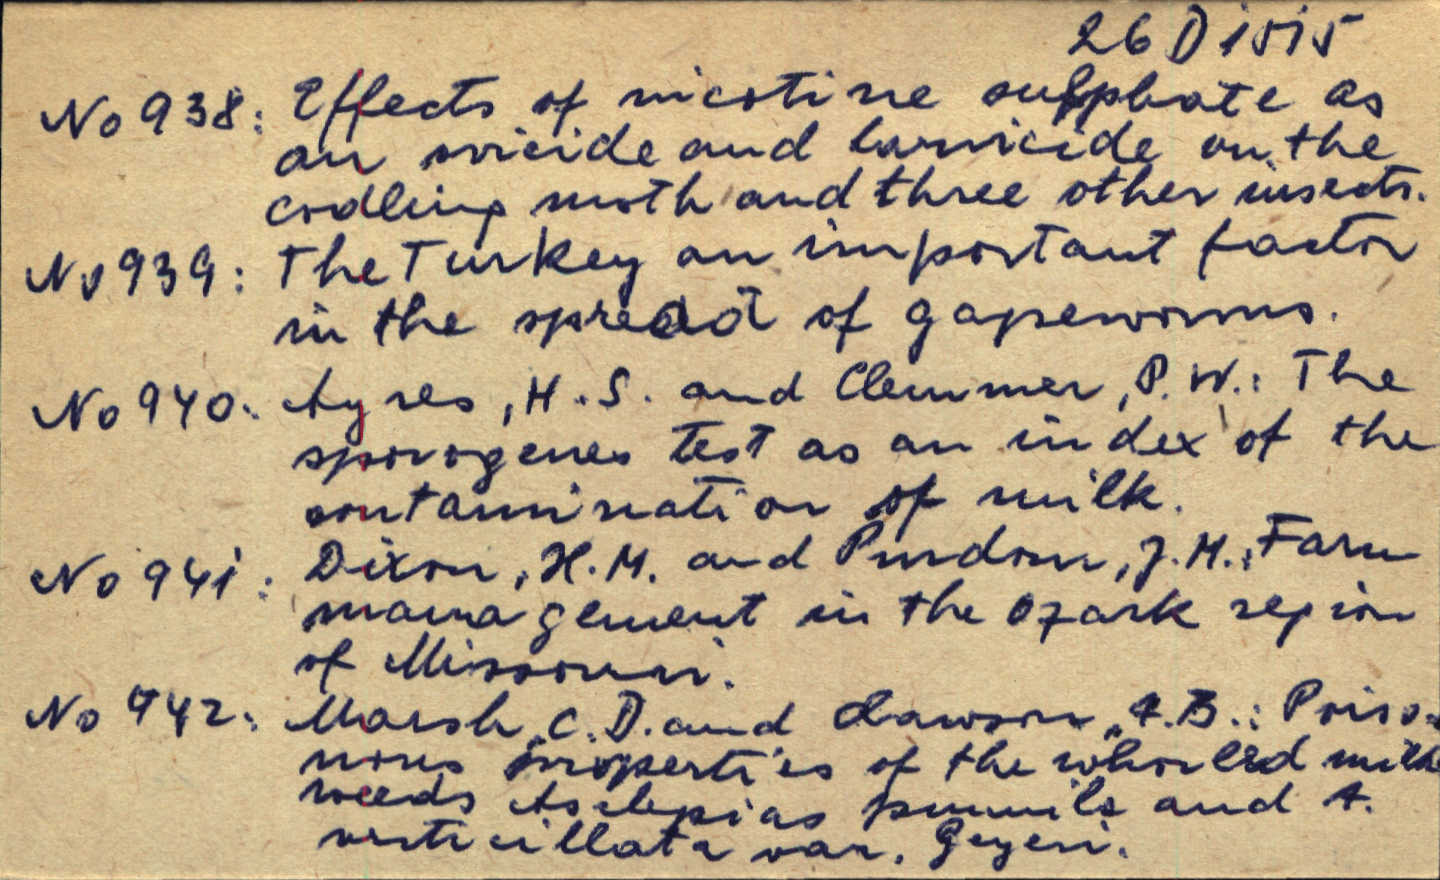 26 D 1515
No 938: Effects of nicotine sulphate as
an ovicide and larvicide on the
codling moth and three other insects.
No 939: The Turkey an important factor
in the spread of gapeworms.
No 940: Ayres, H. S. and Clemmer, P. W.: The
sporogenes test as an index of the
contamination of milk.
No 941: Dixon, H. M. and Purdom, J. H.: Farm
management in the Ozark region
of Missouri.
No 942: Marsh, C. D. and Clawson, A. B.: Poiso-
nous properties of the whorled milk
weeds Asclepias pumila and A.
verticillata var. Geyeri.